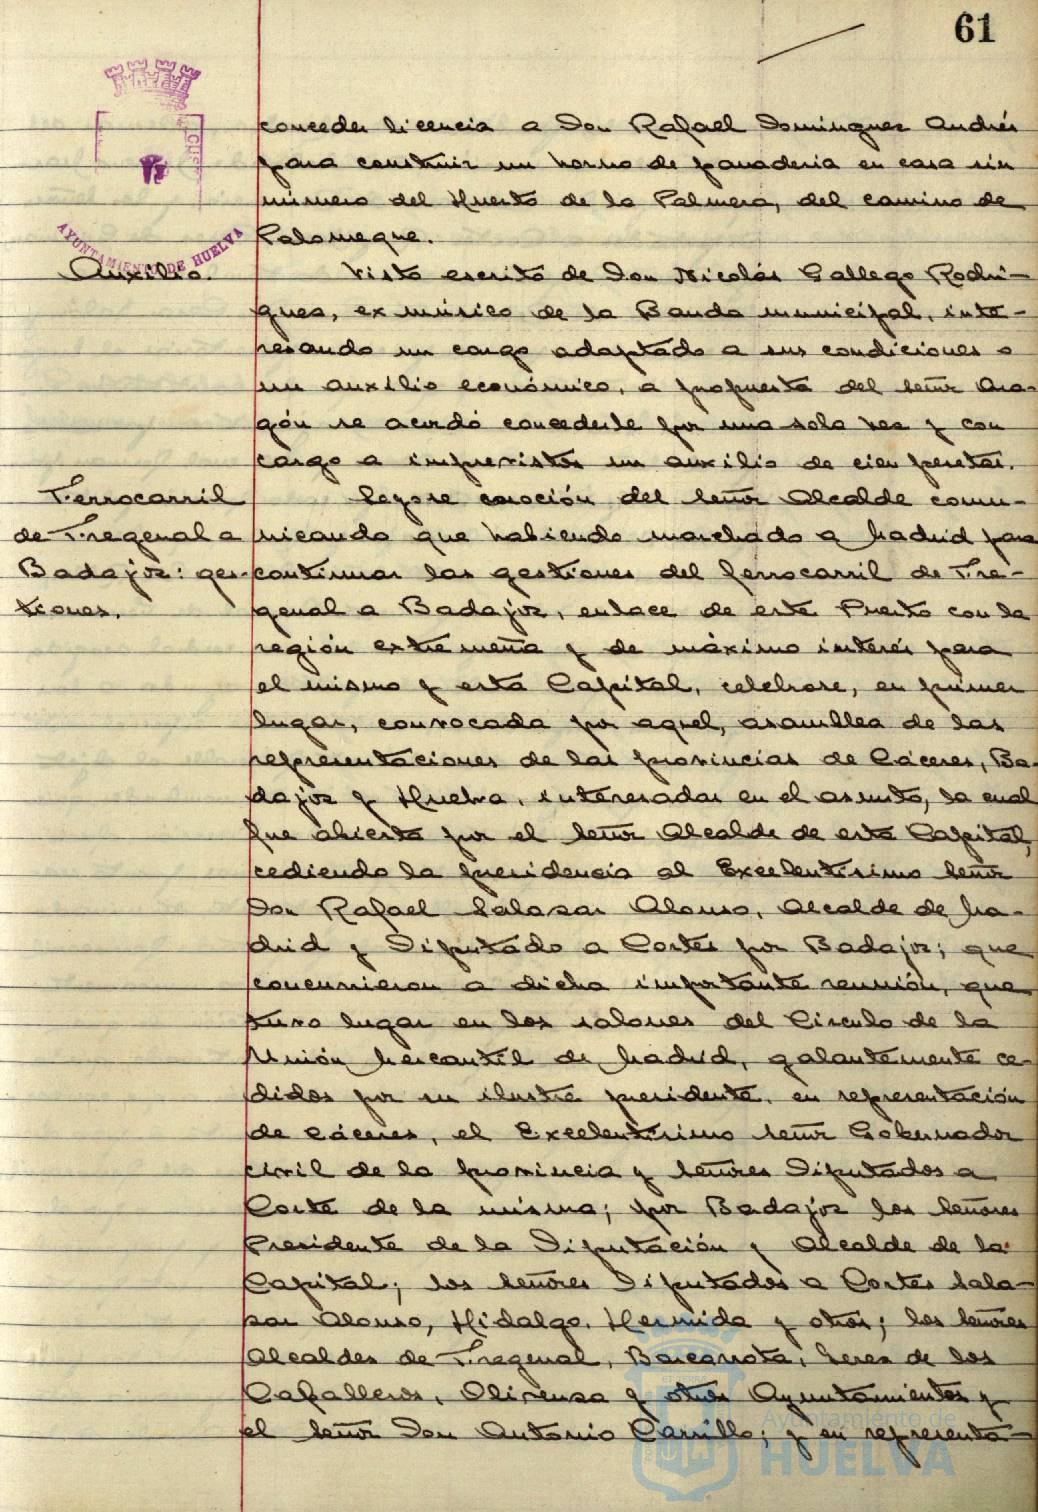 61
AYUNTAMIENTO DE HUELVA
conceder licencia a Don Rafael Dominguez Andrés
para construir un horno de panadería en casa sin
número del Huerto de la Palmera, del camino de
Palomeque.
Auxilio.
Visto escrito de Don Nicolás Gallego Rodrí-
guez, ex músico de la Banda municipal, inte-
resando un cargo adaptado a sus condiciones o
un auxilio económico, a propuesta del señor Ara-
gón se acordó concederle por una sola vez y con
cargo a imprevistos un auxilio de cien pesetas.
Ferrocarril
de Fregenal a
Badajoz: ges-
tiones.
Leyose moción del señor Alcalde comu-
nicando que habiendo marchado a Madrid para
continuar las gestiones del ferrocarril de Fre-
genal a Badajoz, enlace de este Puerto con la
región extremeña y de máximo interés para
el mismo y esta Capital, celebrose, en primer
lugar, convocada por aquel, asamblea de las
representaciones de las provincias de Cáceres, Ba-
dajoz y Huelva, interesadas en el asunto, la cual
fue abierta por el señor Alcalde de esta Capital,
cediendo la presidencia al Excelentísimo señor
Don Rafael Salazar Alonso, Alcalde de Ma-
drid y Diputado a Cortes por Badajoz; que
concurrieron a dicha importante reunión, que
tuvo lugar en los salones del Circulo de la
Unión Mercantil de Madrid, galantemente ce-
didos por su ilustre presidente, en representación
de Cáceres, el Excelentísimo señor Gobernador
civil de la provincia y señores Diputados a
Corte de la misma; por Badajoz los señores
Presidente de la Diputación y Alcalde de la
Capital; los señores Diputados a Cortes Sala-
zar Alonso, Hidalgo, Hermida y otros; los señores
Alcaldes de Fregenal, Barcarrota, Jerez de los
Caballeros, Olivenza y otros Ayuntamientos y
el señor Don Antonio Carrillo; y en representa-
Ayuntamiento de
HUELVA